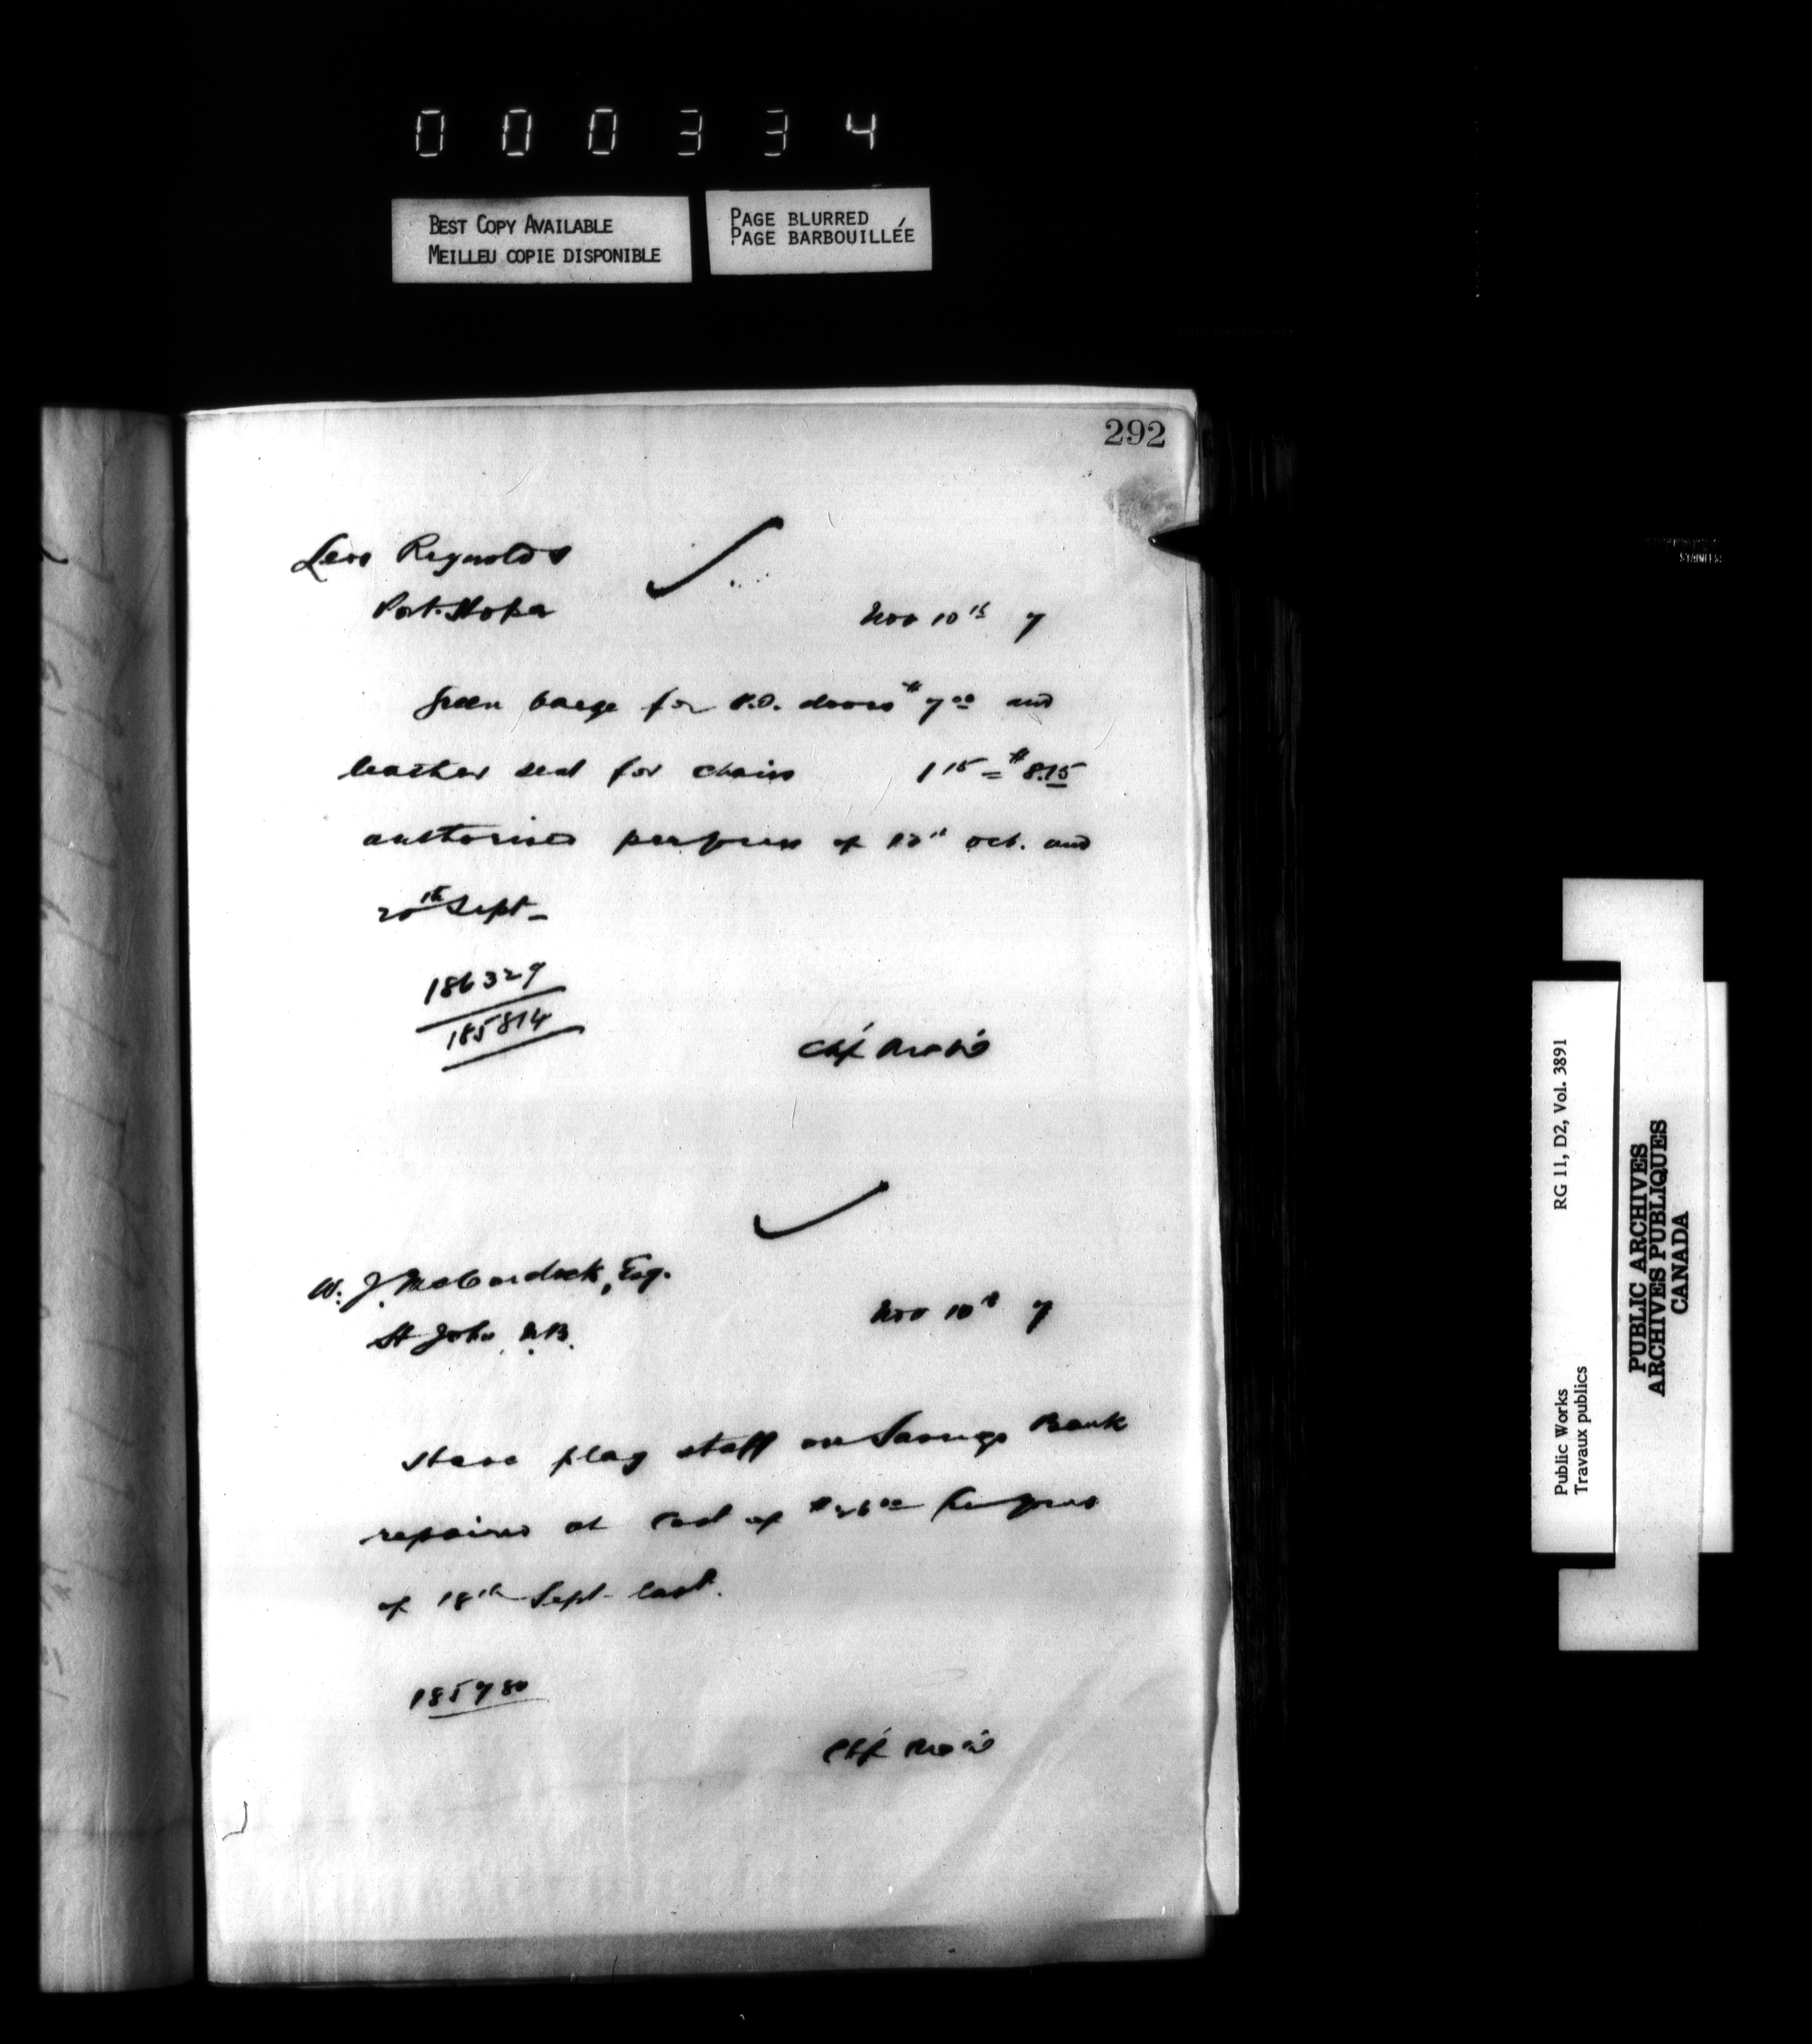 000334
BEST COPY AVAILABLE
MEILLEU COPIE DISPONIBLE
PAGE BLURRED
PAGE BARBOUILLÉE
292
Reynolds
Port Hope
Nov 10th 7
Green baege for P.O. doors $7.00 and
leather seat for chairs 1 15 = $8.15
authorised of oct. and
20th Sept
186329
185814
W. J. Esq.
St John, N.B.
Nov 10th 7
Have flag staff on Savings Bank
repaired at cost of $26.00
of 18th Sept last.
185780
Public Works
Travaux publics
RG 11, D2, Vol. 3891
PUBLIC ARCHIVES
ARCHIVES PUBLIQUES
CANADA